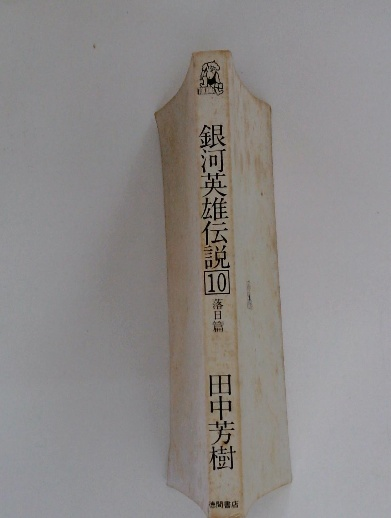 銀河英雄伝説
10
落日篇
田中芳樹
徳間書店